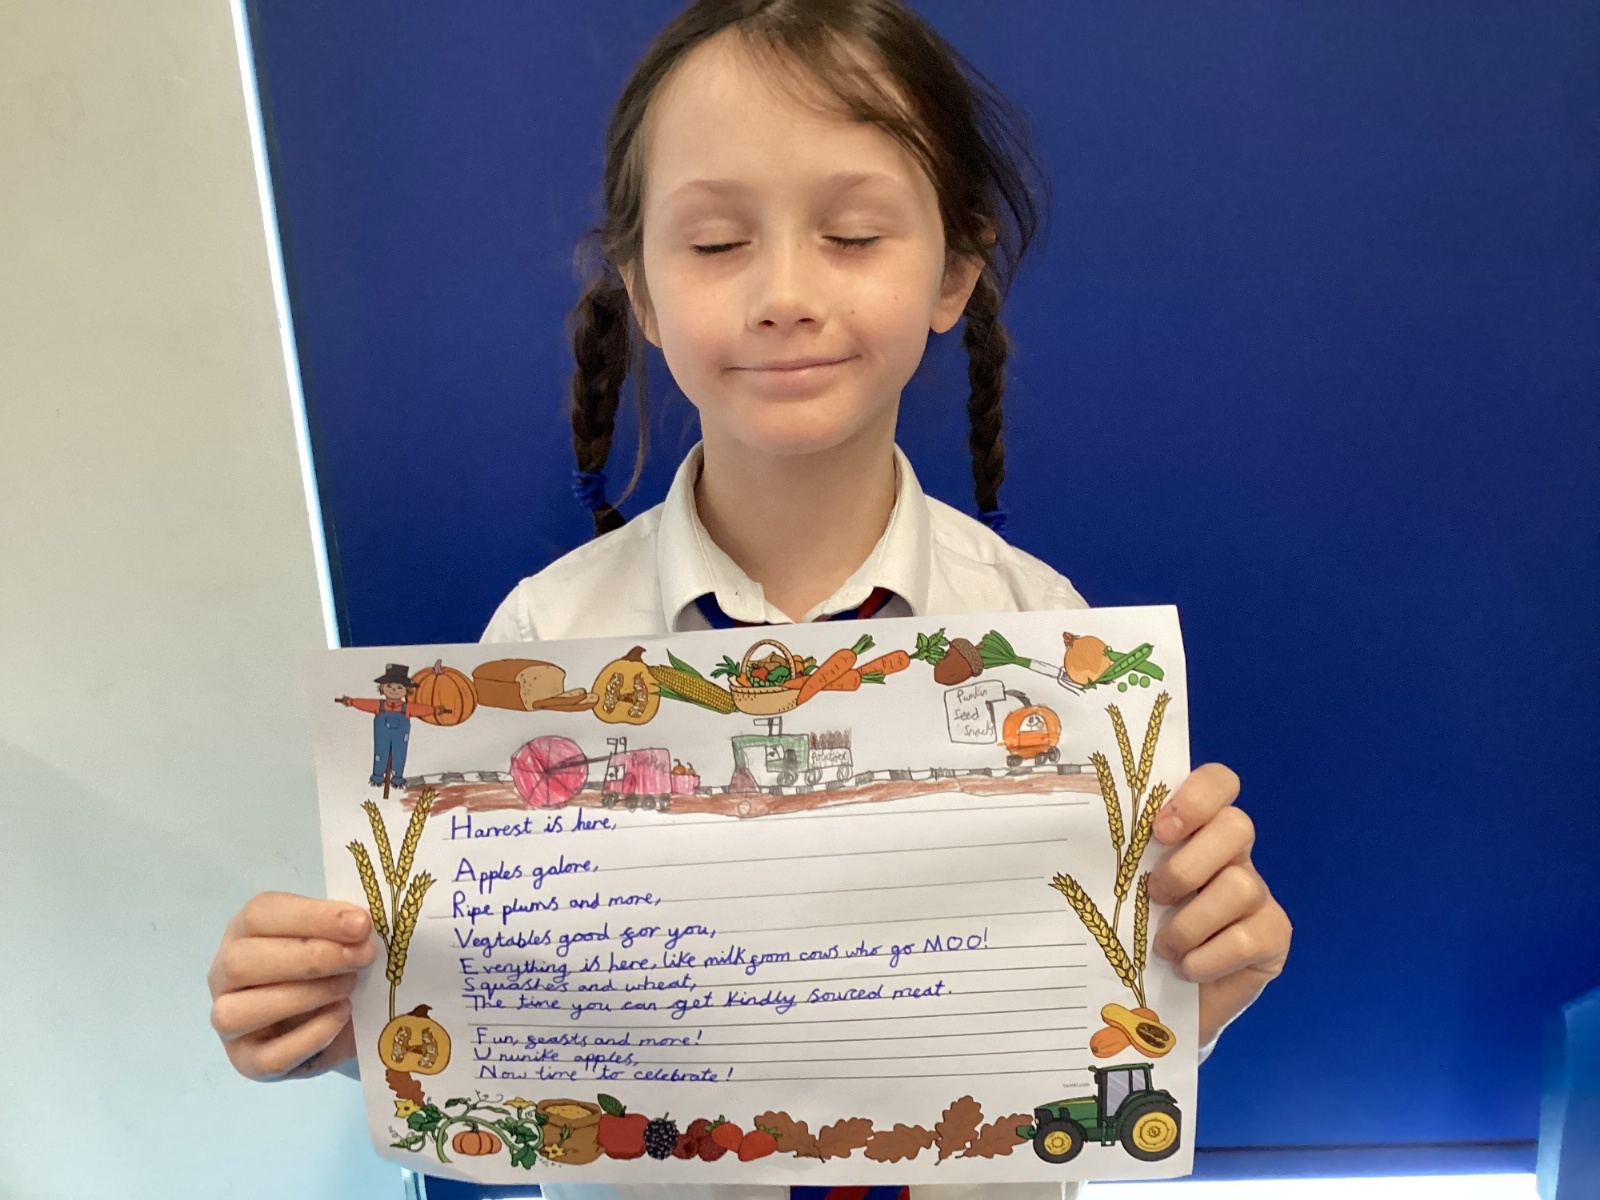 Punkin
Seed
Snacks
Punkin
Potatoes
Harvest is here,
Apples galore,
Ripe plums and more,
Vegtables good for you,
Everything is here, like milk from cows who go MOO!
Squashes and wheat,
The time you can get kindly sourced meat.
Fun, feasts and more!
Ununike apples,
Now time to celebrate!
twinkl.com